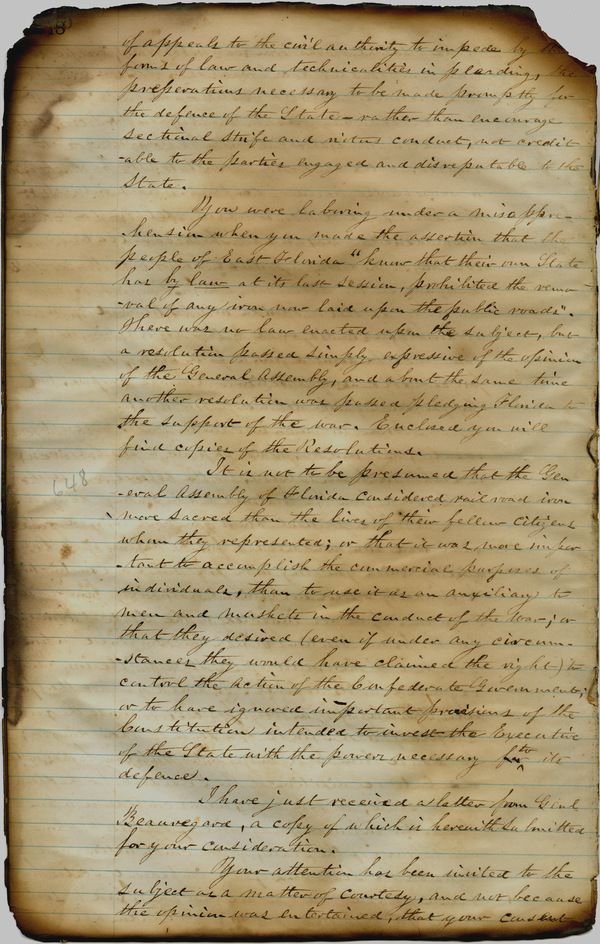 18
of appeals to the civil authority to impede by the
forms of law and technicalities in pleading, the
preperations necessary to be made promptly for
the defence of the State – rather than encourage
sectional strife and riotous conduct, not credit
-able to the parties engaged and disreputable to the
State.
You were laboring under a misappre-
-hension when you made the assertion that the
people of East Florida "know that their own State
has by law at its last session, prohibited the remo-
-val of any iron now laid upon the public roads".
There was no law enacted upon the subject, but
a resolution passed simply expressive of the opinion
of the General Assembly, and about the same time
another resolution was passed pledging Florida to
the support of the war. Enclosed you will
find copies of the Resolutions.
It is not to be presumed that the Gen
-eral Assembly of Florida considered rail road iron
more sacred than the lives of their fellow citizens
whom they represented; or that it was more impor
-tant to accomplish the commercial purposes of
individuals, than to use it as an auxiliary to
men and muskets in the conduct of the war; or
that they desired (even if under any circum-
-stances they would have claimed the right) to
control the action of the Confederate Government;
or to have ignored important provisions of the
Constitution intended to invest the Executive
of the State with the powers necessary to its
defence.
I have just received a letter from Genl
Beauregard, a copy of which is herewith submitted
for your consideration.
Your attention has been invited to the
subject as a matter of courtesy, and not because
the opinion was entertained, that your consent
648